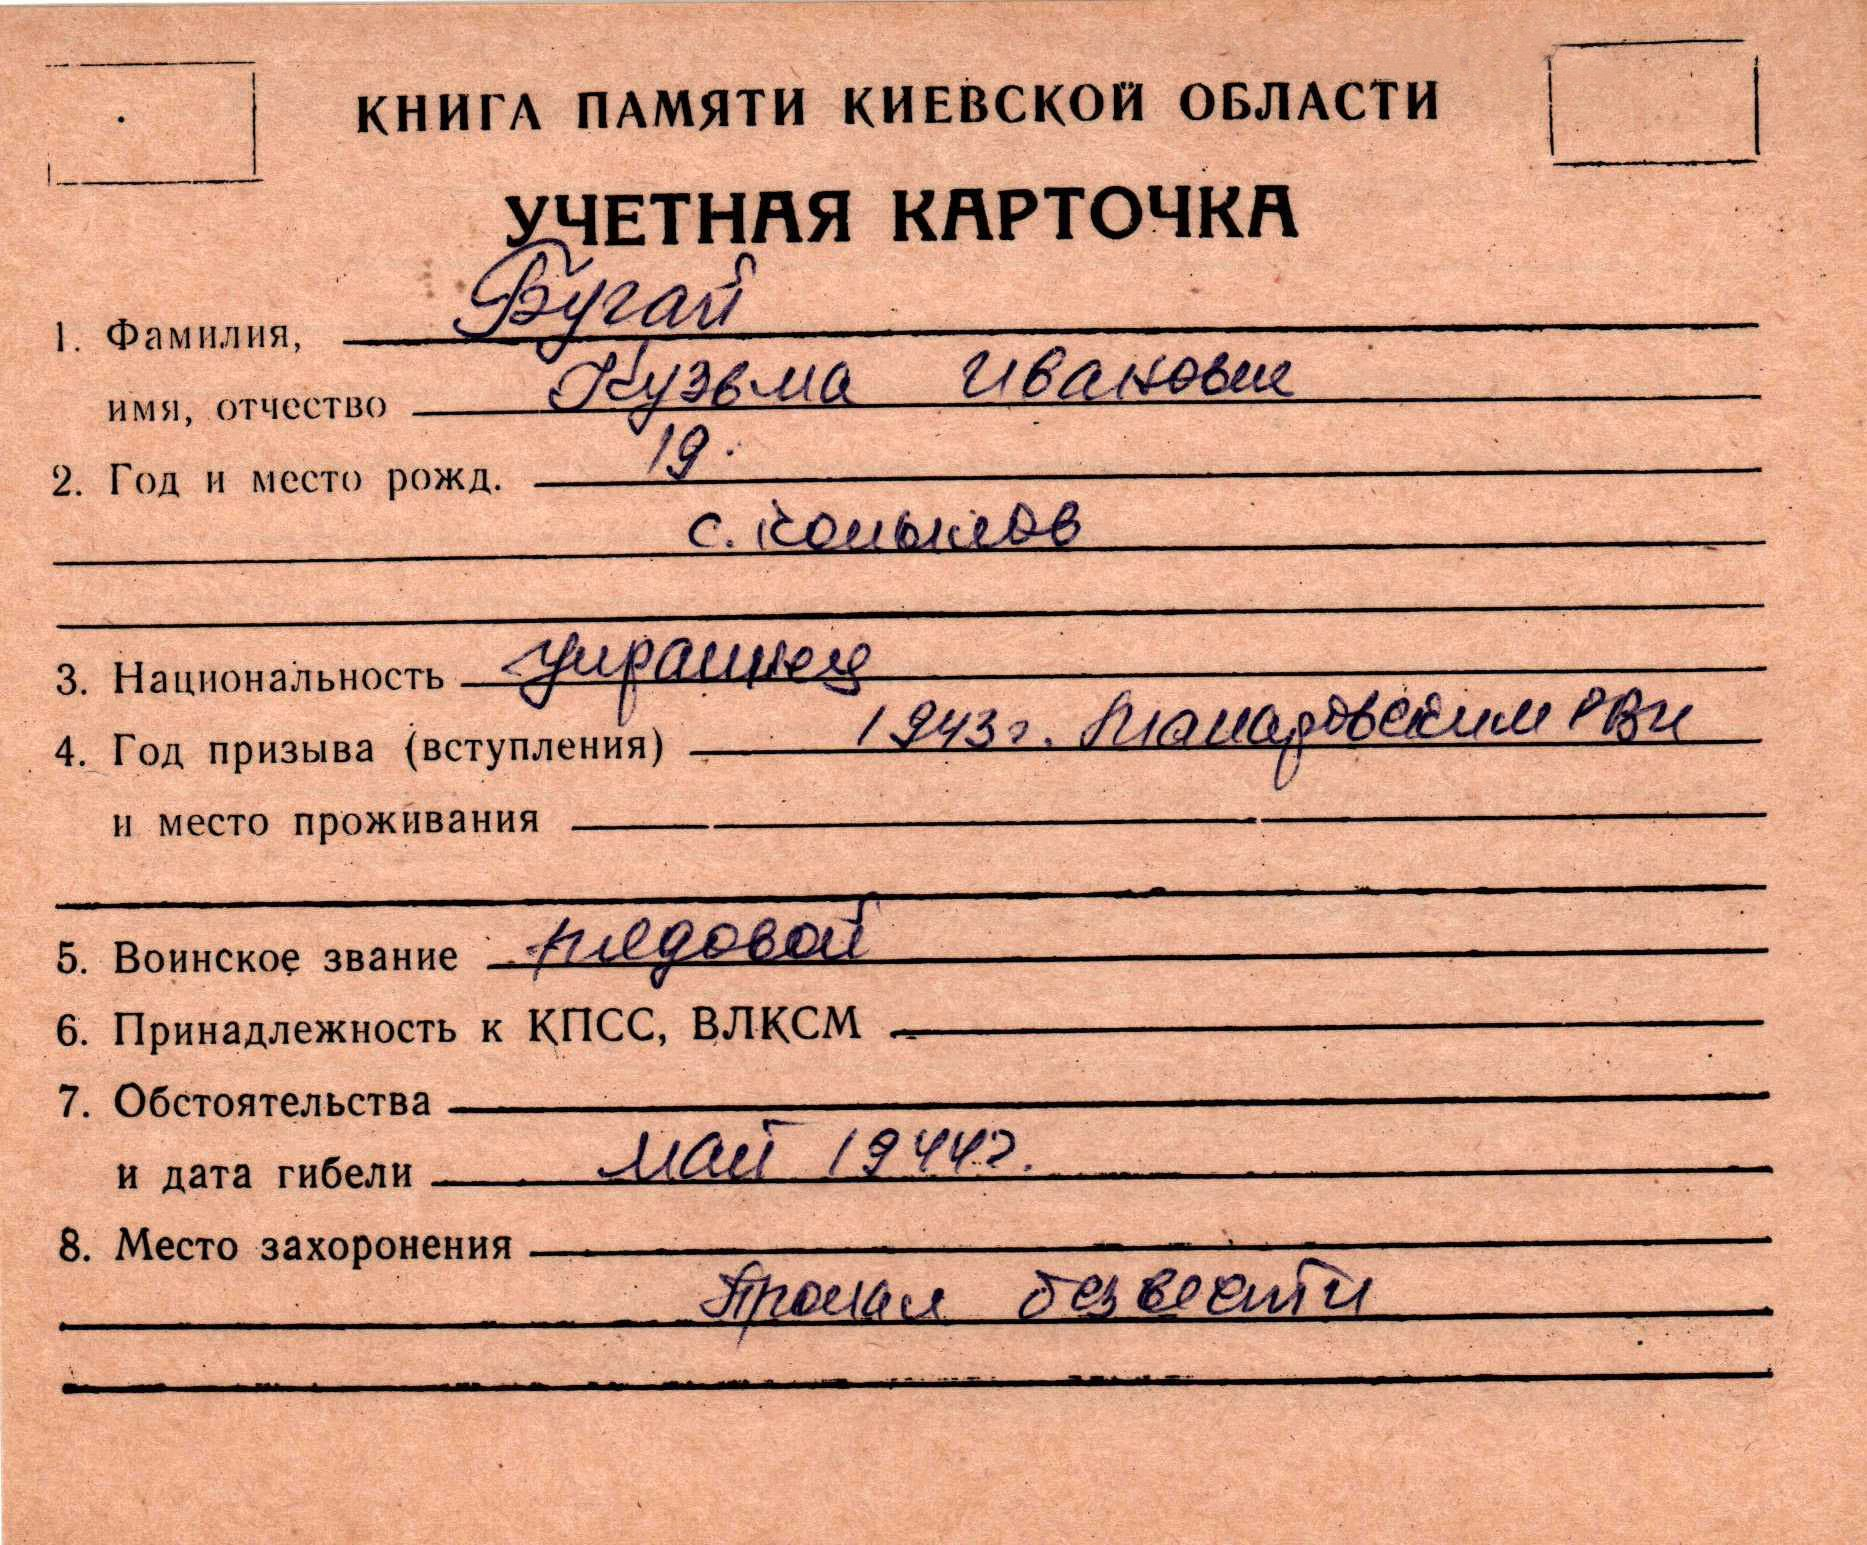 КНИГА ПАМЯТИ КИЕВСКОЙ ОБЛАСТИ
УЧЕТНАЯ КАРТОЧКА
1. Фамилия, Бугай
имя, отчество Кузьма Иванович
2. Год и место рожд. 19
с. Копылов
3. Национальность украинец
4. Год призыва (вступления) 1943г. Макаровским РВК
и место проживания
5. Воинское звание рядовой
6. Принадлежность к КПСС, ВЛКСМ
7. Обстоятельства
и дата гибели май 1944г.
8. Место захоронения
Пропал без вести